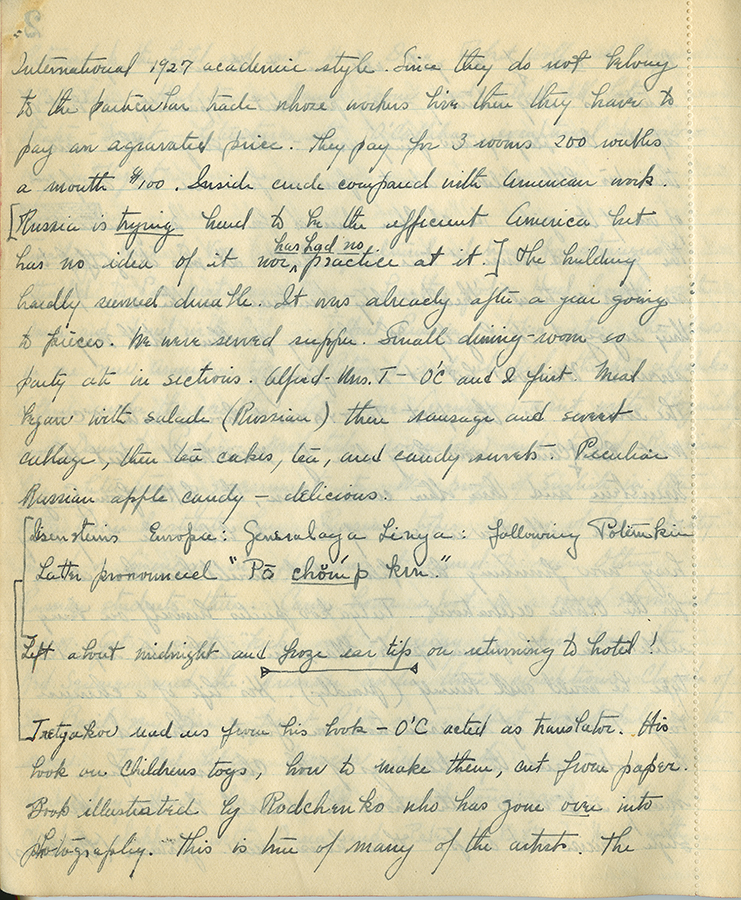 International 1927 academic style. Since they do not belong
to the particular trade whose workers live there they have to
pay an agravated price. They pay for 3 rooms 200 roubles
a month $100. Inside crude compared with American work.
[Russia is trying hard to be the efficient America but
has had no
has no idea of it nor ^ practice at it.] The building
hardly seemed durable. It was already after a year going
to pieces. We were served supper. Small dining-room so
party ate in sections. Alfred-Mrs. T- O'C and I first. Meal
began with salade (Russian) then sausage and sweet
cabbage, then tea cakes, tea, and candy sweets. Peculiar
Russian apple candy - delicious.
[Eisensteins Europa: Generalaya Linya: following Potemkin
Latter pronounced "Pō chŏm'p kin."
Left about midnight and froze ear tip on returning to hotel!
Tretyakov read us from his book - O'C acted as translator. His
book on childrens toys, how to make them, cut from paper.
Book illustrated by Rodchenko who has gone over into
photography. This is true of many of the artists. The